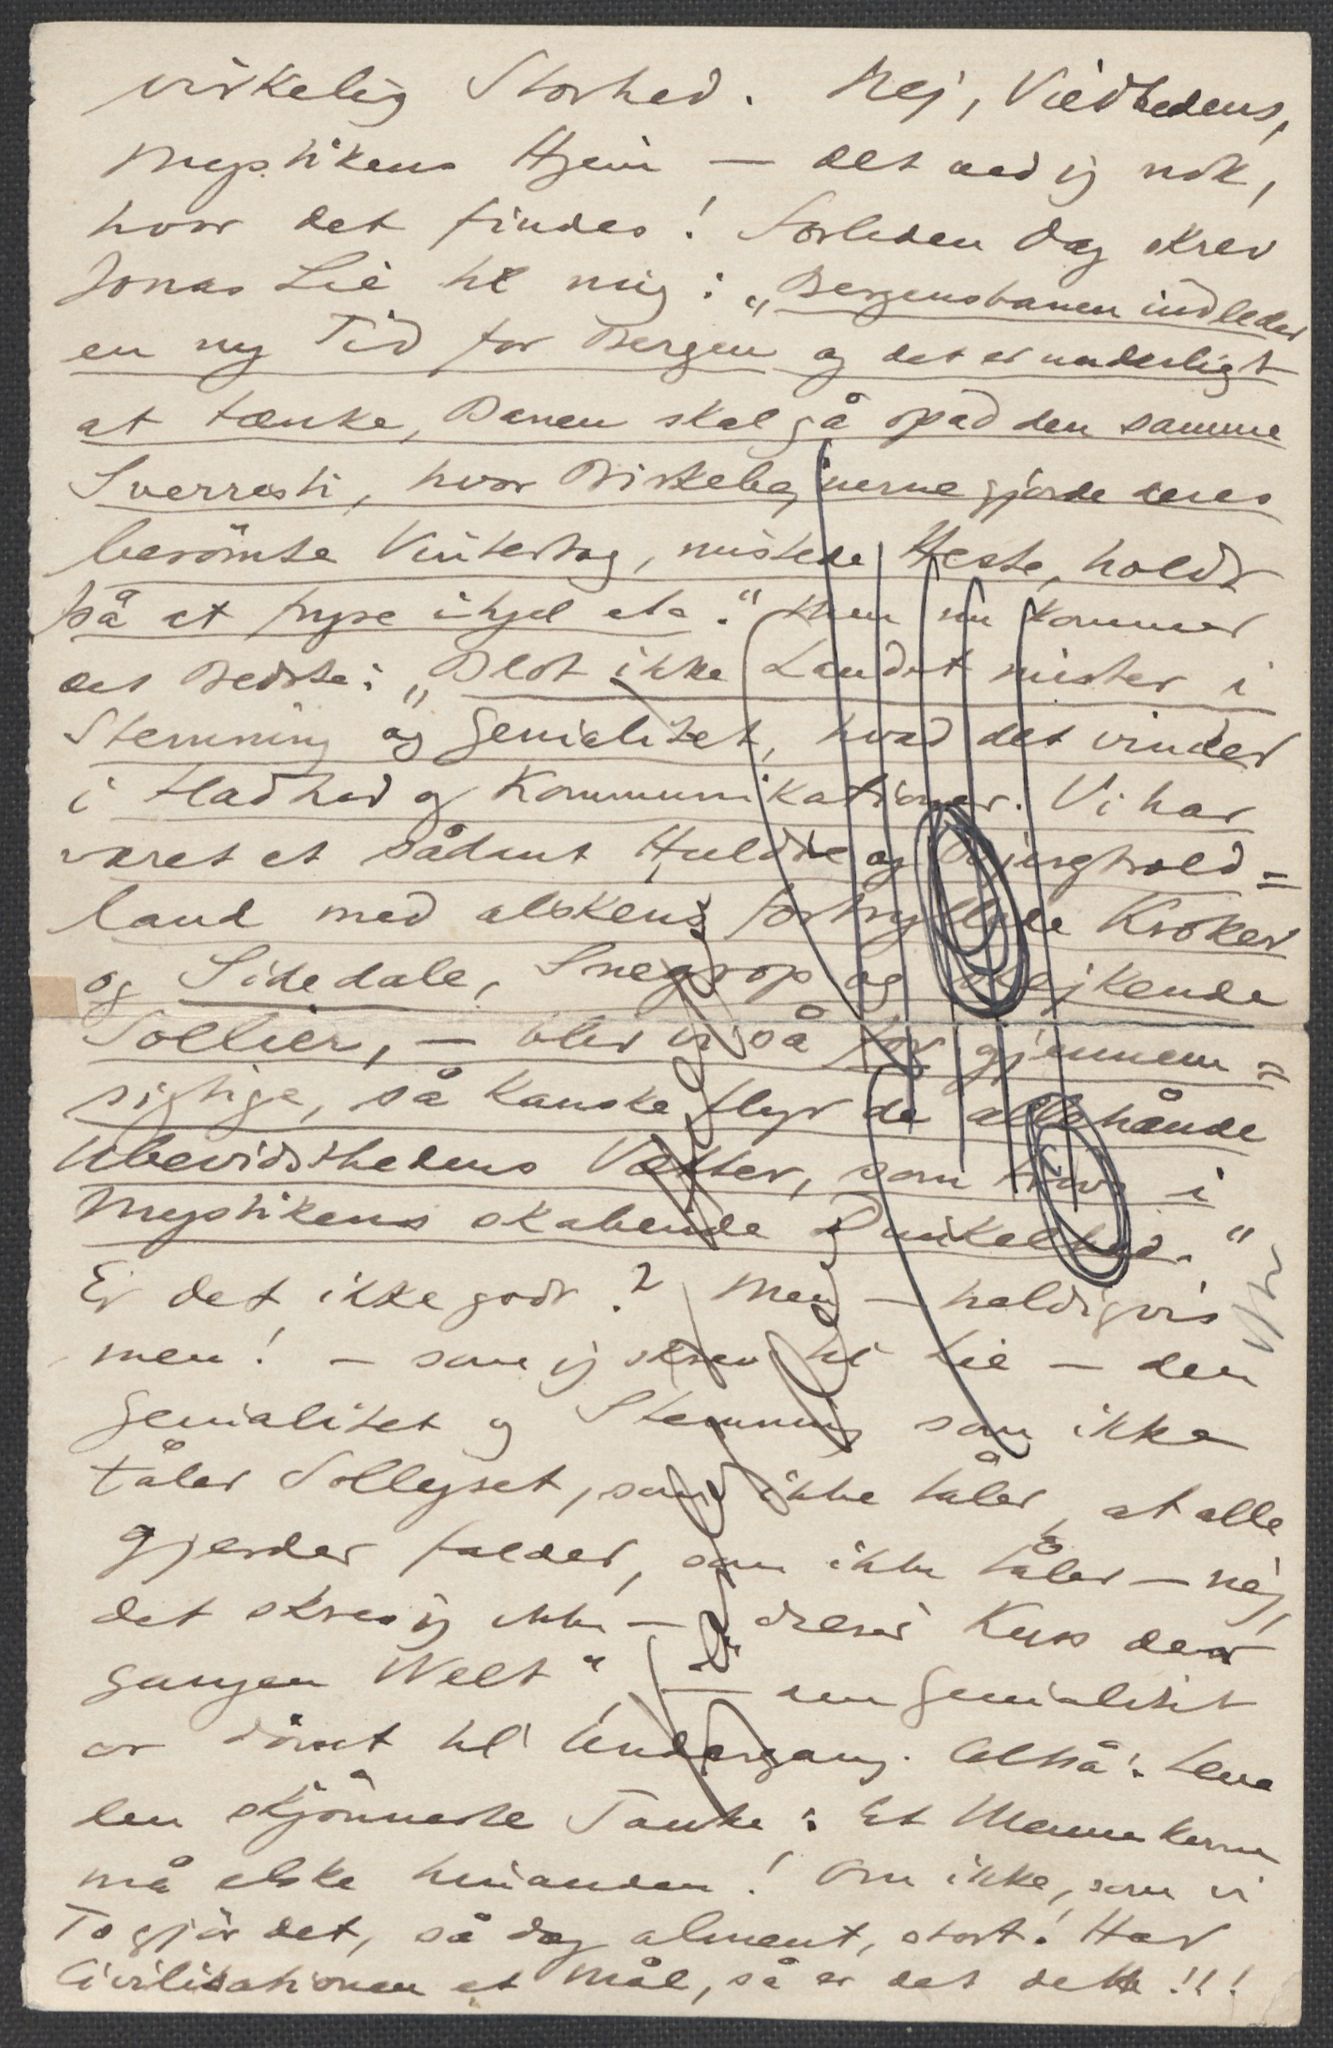 virkelig Storhed. Nej, Vildhedens,
Mystikens Hjem — det ved jeg nok,
hvor det findes! Forleden Dag skrev
Jonas Lie til mig: „Bergensbanen indleder
en ny Tid for Bergen og det er underligt
at tænke, Banen skal gå opad den samme
Sverresti, hvor Birkebejnerne gjorde deres
berömte Vintertog, mistede Heste, holdt
på at fryse ihjel etc." Men nu kommer
det Bedste: „Blot ikke Landet mister i
Stemning og Genialitet, hvad det vinder
i Fladhed og Kommunikationer. Vi har
været et sådant Huldre og Bjergtrold=
land med alskens fortryllede Kroker
og Sidedale, Snegrop og blejkende
Sollier, — blev vi så for gjennem=
sigtige, så kanske flyr de allehånde
Ubevidsthedens Vætter, som trivs i
Mystikens skabende Dunkelhed."
Er det ikke godt? Men — heldigvis
men! — som jeg skrev til Lie — den
Genialitet og Stemning som ikke
tåler Sollyset, som ikke tåler, at alle
Gjerder falder, som ikke tåler — nej,
det skrev jeg ikke — „diesen Kuss der
ganzen Welt" — den Genialitet
er dömt til Undergang. Altså: Leve
den skjönneste Tanke: At Menneskene
må elske hinanden! Om ikke, som vi
To gjör det, så dog alment, stort! Har
Civilisationen et Mål, så er det dette!!!